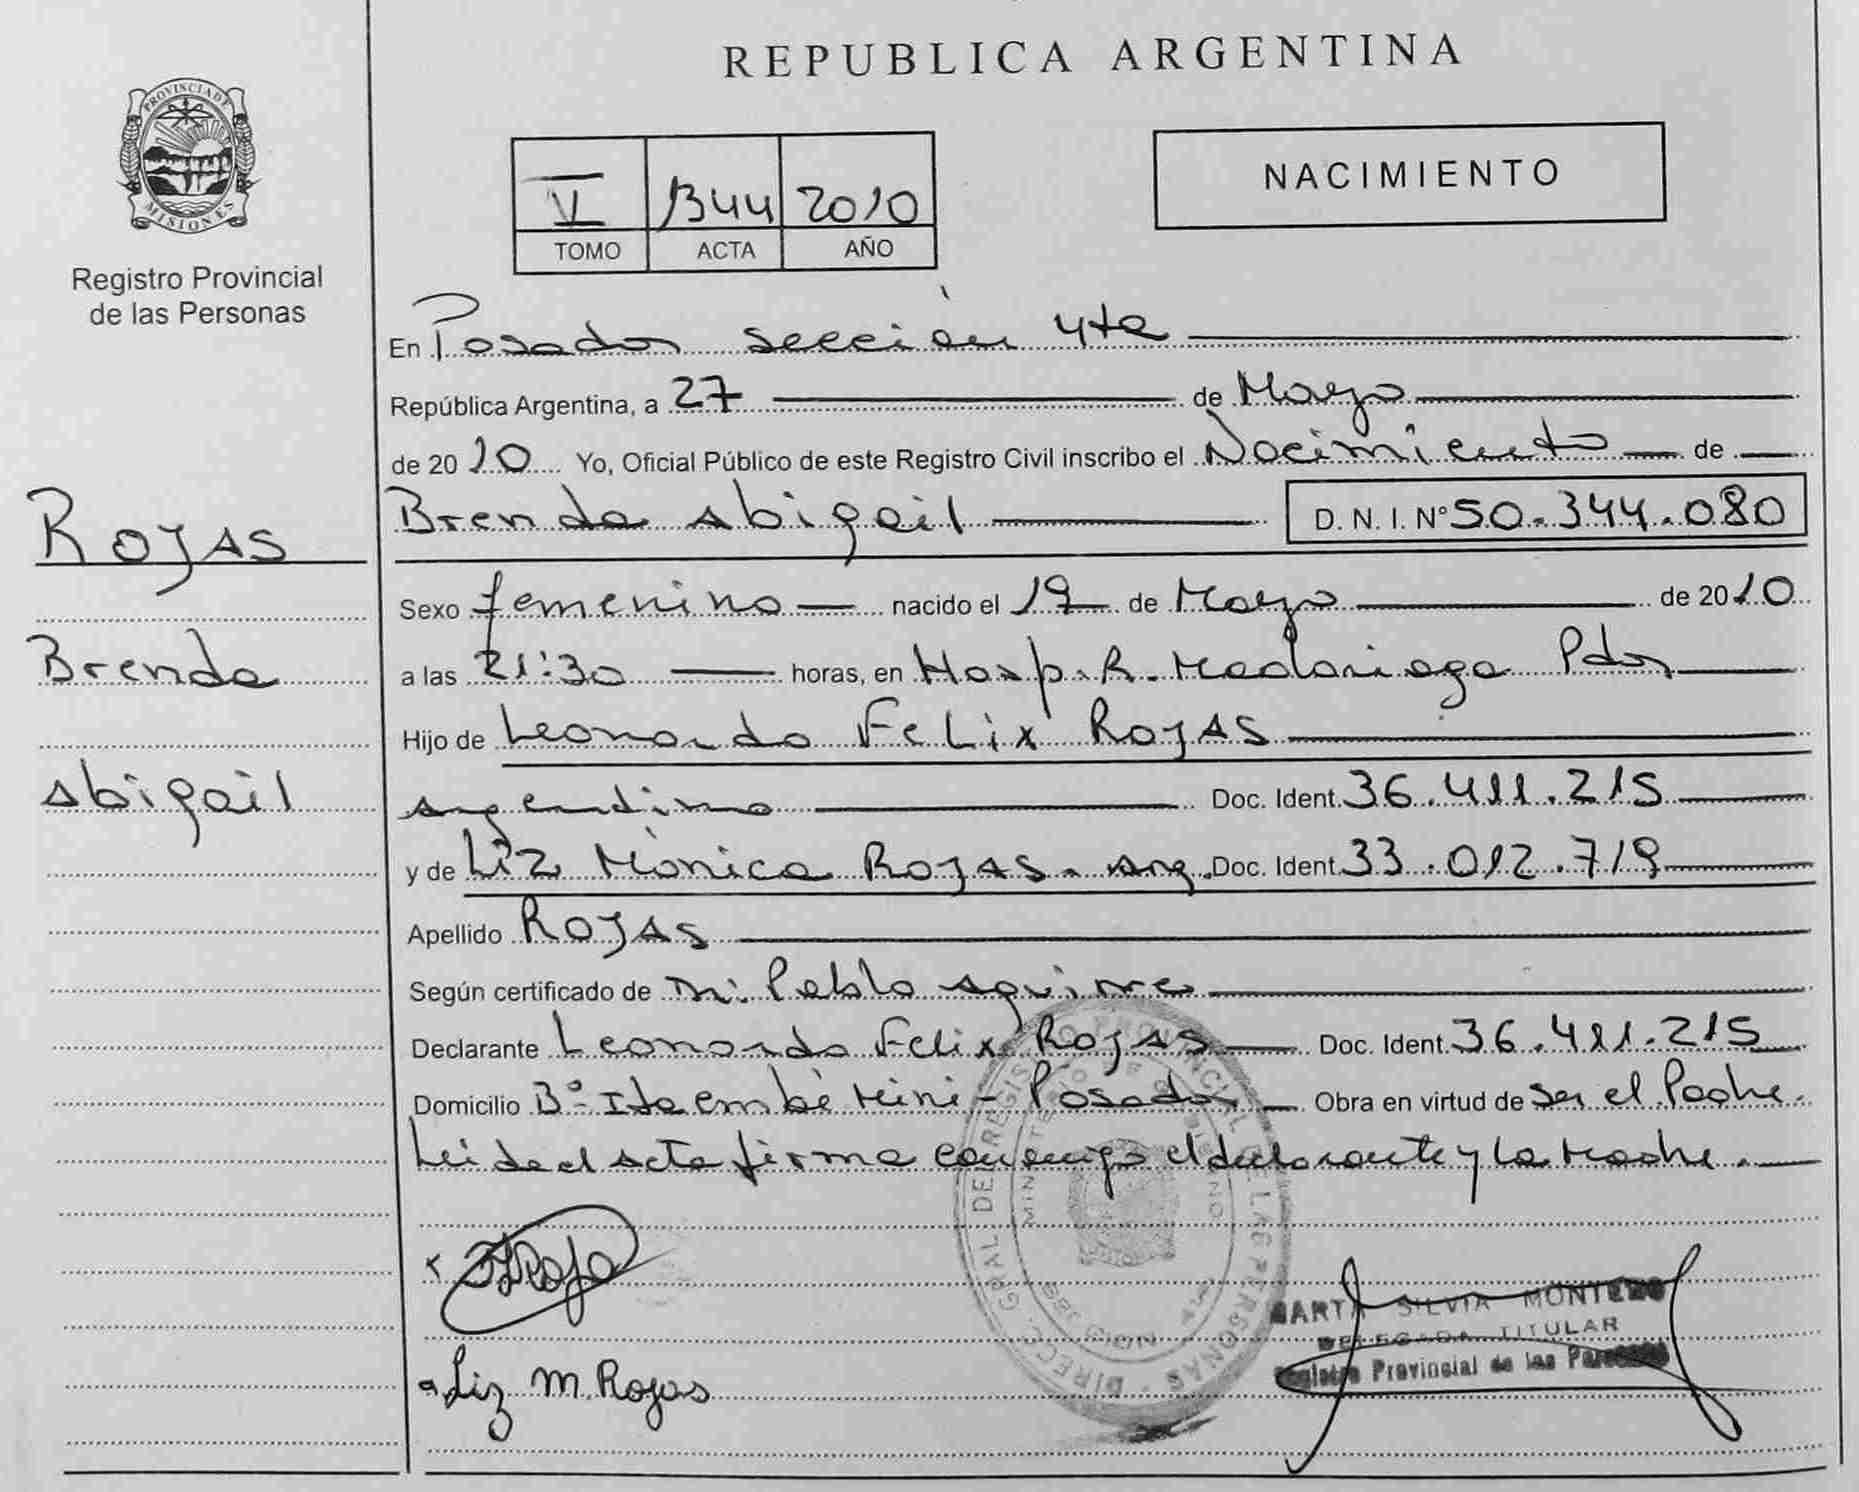 REPUBLICA ARGENTINA
PROVINCIA DE
MISIONES
Registro Provincial
de las Personas
V 1344 2010
TOMO ACTA AÑO
NACIMIENTO
En Posadas sección 4ta
República Argentina, a 27 de Mayo
de 2010 Yo, Oficial Público de este Registro Civil inscribo el Nacimiento de
Brenda Abigail D. N. I. N° 50.344.080
ROJAS
Brenda
Abigail
Sexo femenino nacido el 19 de Mayo de 2010
a las 21:30 horas, en Hosp. R. Madariaga Pdas
Hijo de Leonardo Felix ROJAS
argentino Doc. Ident. 36.411.215
y de Liz Mónica ROJAS. arg. Doc. Ident. 33.012.719
Apellido ROJAS
Según certificado de Pablo Aguirre
Declarante Leonardo Felix Rojas Doc. Ident. 36.411.215
Domicilio B° Itaembé Mini - Posadas Obra en virtud de ser el Padre.
Leida el acta firma conmigo el declarante y la Madre.
Liz M. Rojas
MARTA SILVIA MONTERO
DELEGADA TITULAR
Registro Provincial de las Personas